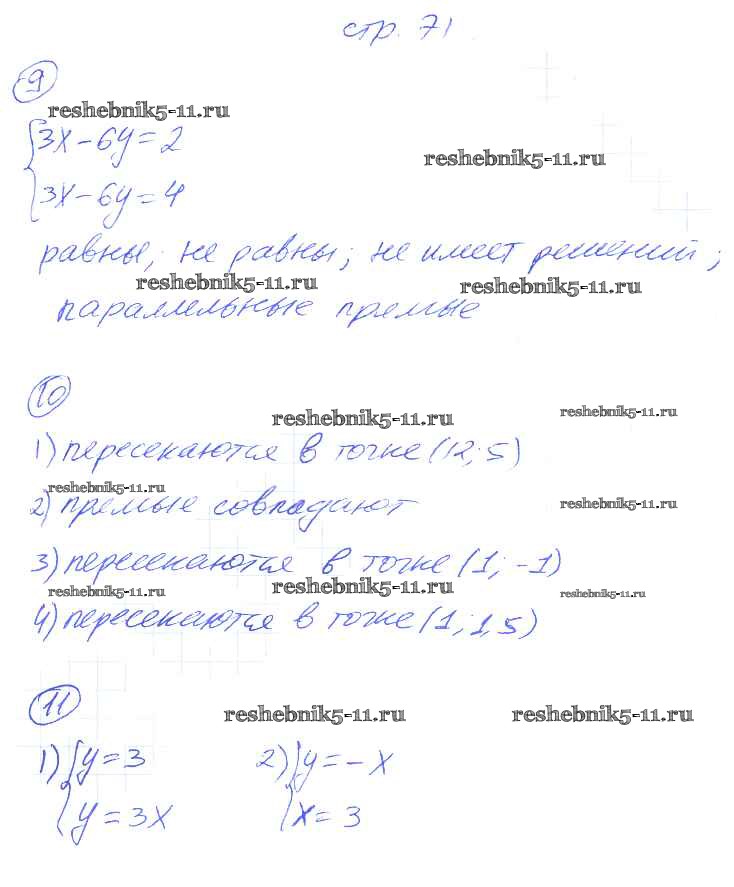 стр. 71
9
reshebnik5-11.ru
3x-6y=2
reshebnik5-11.ru
3x-6y=4
равны; не равны; не имеет решений;
reshebnik5-11.ru reshebnik5-11.ru
параллельные прямые
10
reshebnik5-11.ru reshebnik5-11.ru
1) пересекаются в точке (12; 5)
reshebnik5-11.ru
2) прямые совпадают reshebnik5-11.ru
3) пересекаются в точке (1; -1)
reshebnik5-11.ru reshebnik5-11.ru reshebnik5-11.ru
4) пересекаются в точке (1; 1,5)
11
reshebnik5-11.ru reshebnik5-11.ru
1) {y=3 2) {y=-x
y=3x x=3